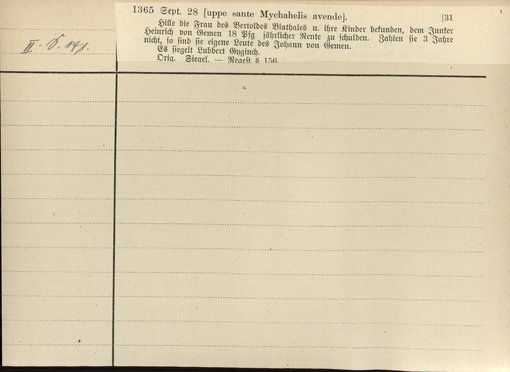 1365 Sept. 28 [uppe sante Mychahelis avende]. [31
Hille die Frau des Bertoldes Blathales u. ihre Kinder bekunden, dem Junker
Heinrich von Gemen 18 Pfg jährlicher Rente zu schulden. Zahlen sie 3 Jahre
nicht, so sind sie eigene Leute des Johann von Gemen.
Es siegelt Lubbert Gyginch.
Orig. Siegel. — Regest S. 156
II. S. 141.